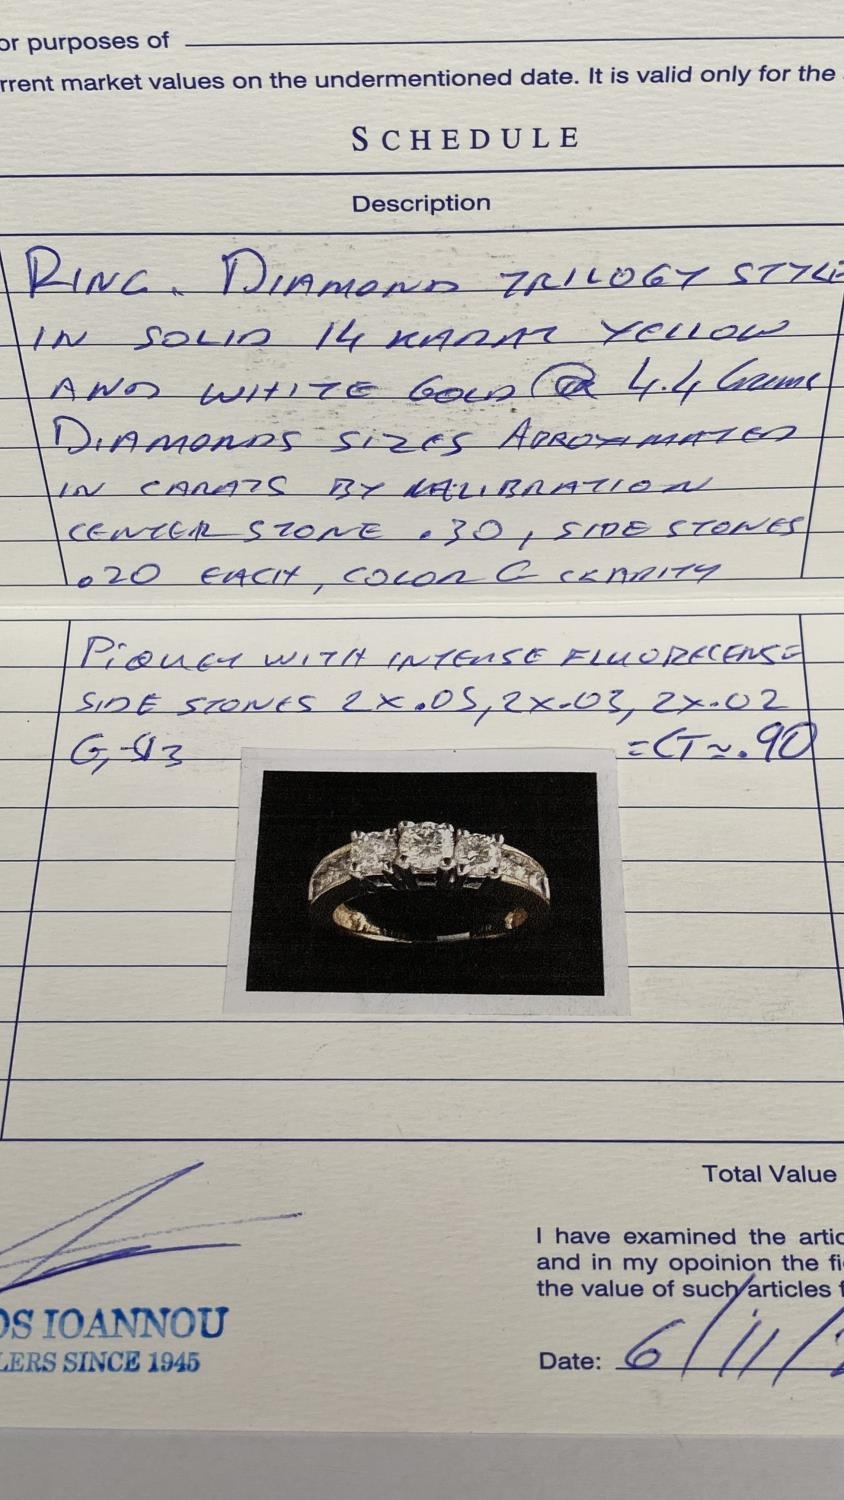 or purposes of
rrent market values on the undermentioned date. It is valid only for the
SCHEDULE
Description
RING. DIAMOND TRILOGY STYLE
IN SOLID 14 KARAT YELLOW
AND WHITE GOLD @ 4.4 Grams
DIAMONDS SIZES APROXIMATED
IN CARATS BY KALIBRATION
CENTER STONE .30, SIDE STONES
.20 EACH, COLOR G CLARITY
PIQUET WITH INTENSE FLUORECENSE
SIDE STONES 2X.05, 2X.03, 2X.02
G, SI3 =CT≈.90
Total Value
I have examined the artic
and in my opoinion the fi
the value of such articles f
OS IOANNOU
LERS SINCE 1945
Date: 6/11/